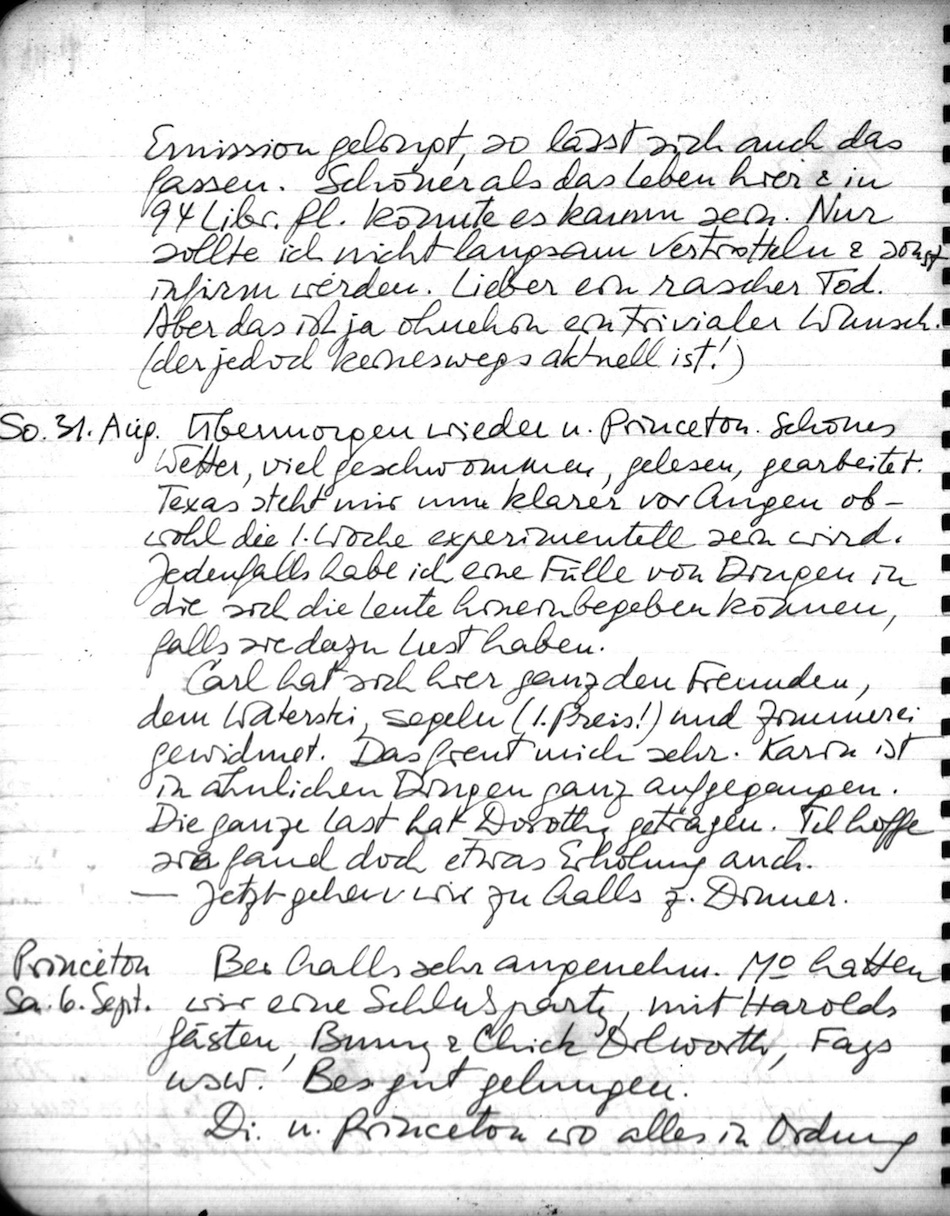 Emission gelingt, so lässt sich auch das
fassen. Schöner als das Leben hier & in
94 Libr. Pl. könnte es kaum sein. Nur
sollte ich nicht langsam vertrotteln & sonst
infirm werden. Lieber ein rascher Tod.
Aber das ist ja ohnehin ein trivialer Wunsch.
(der jedoch keineswegs aktuell ist!)
So. 31. Aug. Übermorgen wieder n. Princeton. Schönes
Wetter, viel geschwommen, gelesen, gearbeitet.
Texas steht mir nun klarer vor Augen ob-
wohl die 1. Woche experimentell sein wird.
Jedenfalls habe ich eine Fülle von Dingen in
die sich die Leute hineinbegeben können,
falls sie dazu Lust haben.
Carl hat sich hier ganz den Freunden,
dem Waterski, Segeln (1. Preis!) und Zimmerei
gewidmet. Das freut mich sehr. Karin ist
in ähnlichen Dingen ganz aufgegangen.
Die ganze Last hat Dorothy getragen. Ich hoffe
sie fand doch etwas Erholung auch.
— Jetzt gehen wir zu Halls z. Dinner.
Princeton Bei Halls sehr angenehm. Mo hatten
Sa. 6. Sept. wir eine Schlußparty, mit Harolds
Gästen, Bunny & Chick Dilworth, Fays
usw. Bes gut gelungen.
Di. n. Princeton wo alles in Ordnung